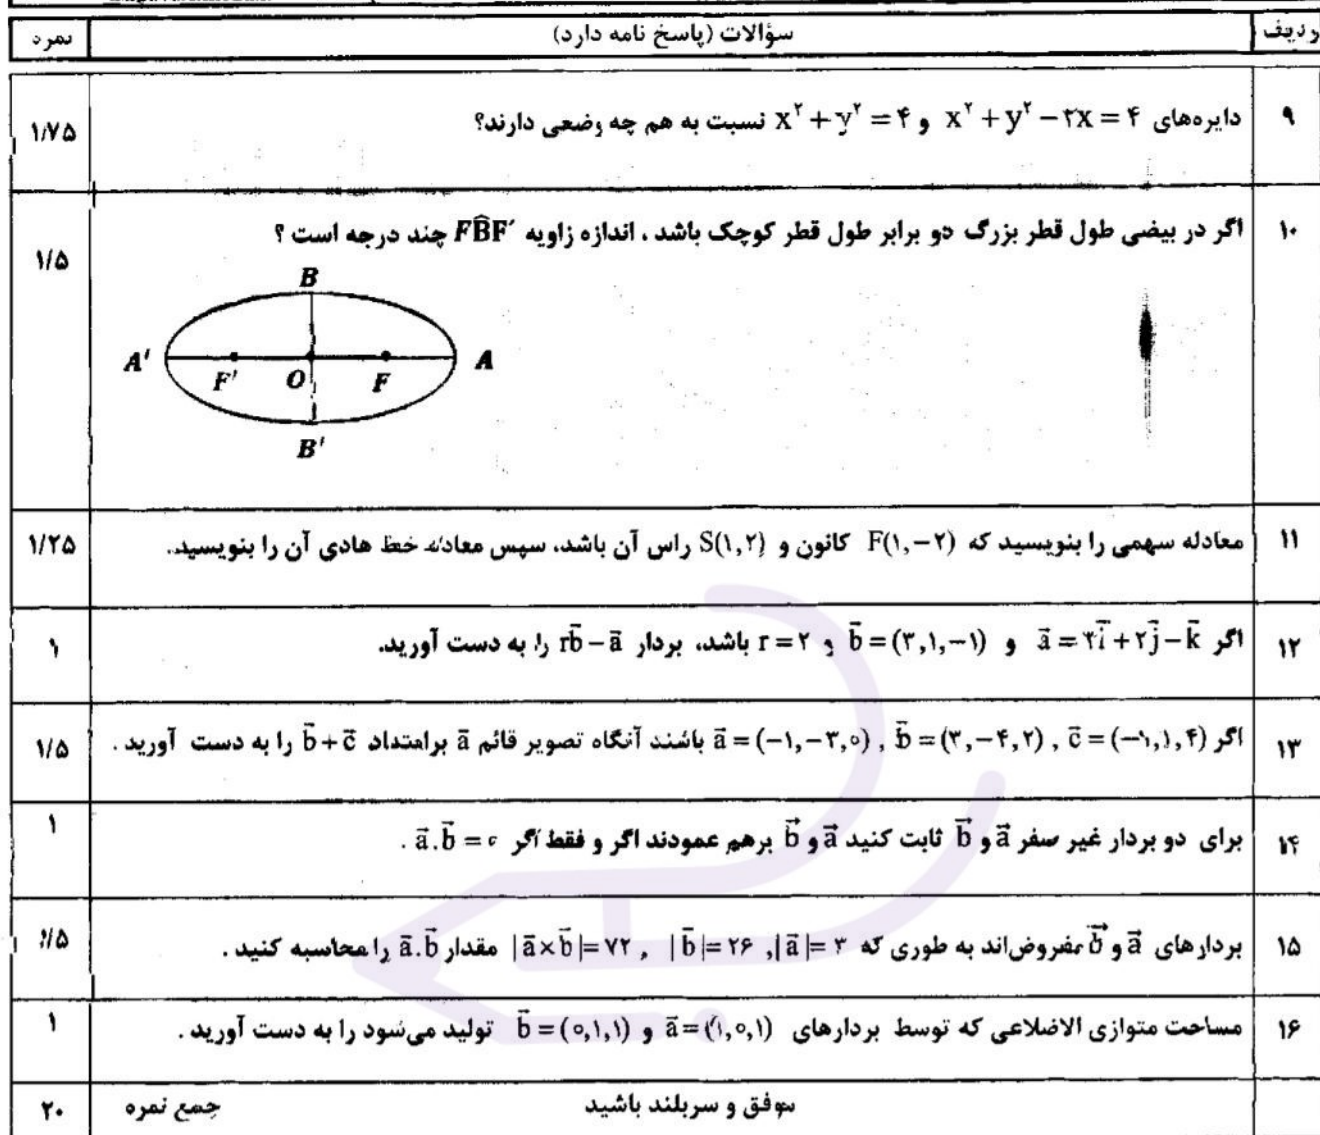 ردیف سؤالات (پاسخ نامه دارد) نمره
۹ دایره‌های x² + y² − ۲x = ۴ و x² + y² = ۴ نسبت به هم چه وضعی دارند؟ ۱/۷۵
۱۰ اگر در بیضی طول قطر بزرگ دو برابر طول قطر کوچک باشد ، اندازه زاویه FB̂F′ چند درجه است ؟ ۱/۵
B
A′ F′ O F A
B′
۱۱ معادله سهمی را بنویسید که F(۱,−۲) کانون و S(۱,۲) راس آن باشد، سپس معادله خط هادی آن را بنویسید. ۱/۲۵
۱۲ اگر a⃗ = ۲i⃗ + ۲j⃗ − k⃗ و b⃗ = (۳,۱,−۱) و r = ۲ باشد، بردار rb⃗ − a⃗ را به دست آورید. ۱
۱۳ اگر a⃗ = (−۱,−۳,۰) , b⃗ = (۳,−۴,۲) , c⃗ = (−۱,۱,۴) باشند آنگاه تصویر قائم a⃗ برامتداد b⃗ + c⃗ را به دست آورید . ۱/۵
۱۴ برای دو بردار غیر صفر a⃗ و b⃗ ثابت کنید a⃗ و b⃗ برهم عمودند اگر و فقط اگر a⃗.b⃗ = ۰ . ۱
۱۵ بردارهای a⃗ و b⃗ مفروض‌اند به طوری که |a⃗| = ۳ , |b⃗| = ۲۶ , |a⃗ × b⃗| = ۷۲ مقدار a⃗.b⃗ را محاسبه کنید . ۱/۵
۱۶ مساحت متوازی الاضلاعی که توسط بردارهای a⃗ = (۱,۰,۱) و b⃗ = (۰,۱,۱) تولید می‌شود را به دست آورید . ۱
موفق و سربلند باشید جمع نمره ۲۰